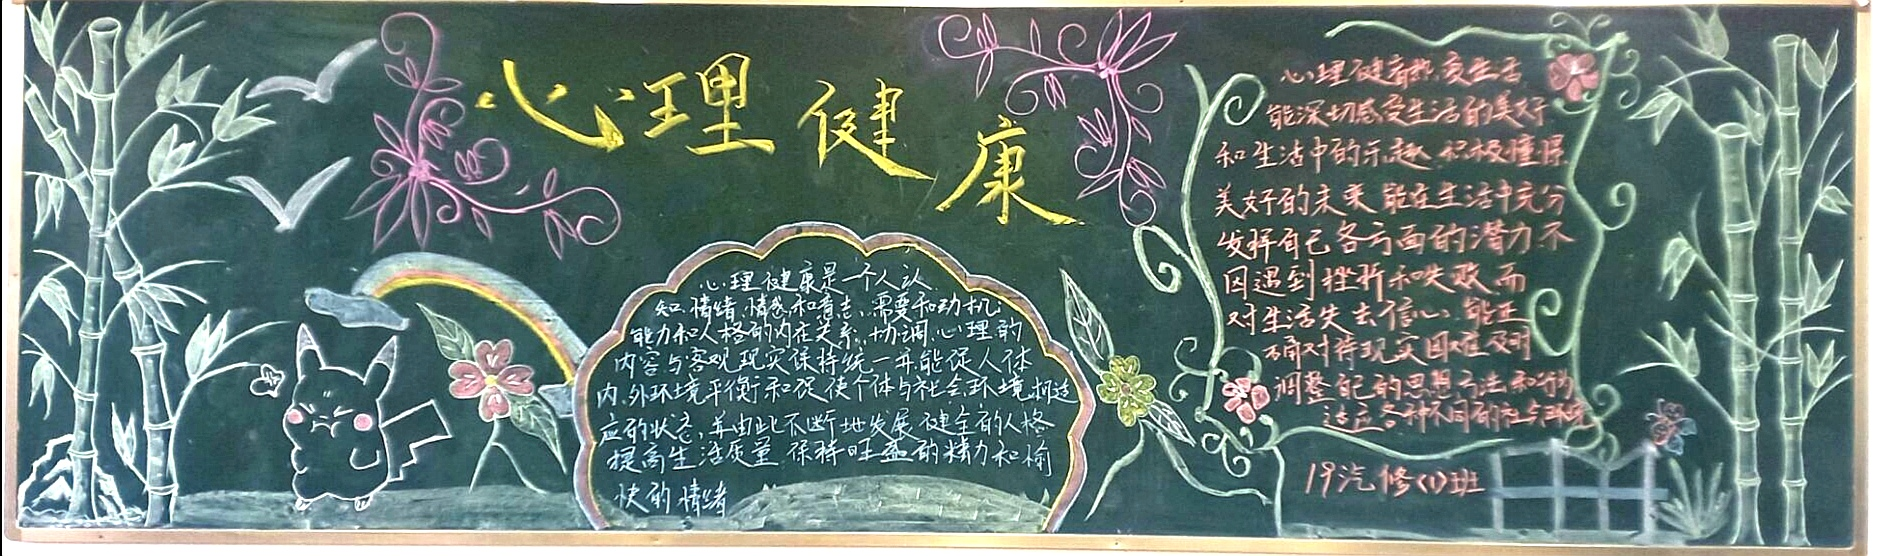 心理健康
心理健康是一个人认
知,情绪,情感和意志,需要和动机,
能力和人格的内在关系,协调,心理的
内容与客观现实保持统一并能促人体
内,外环境平衡和促使个体与社会环境相适
应的状态,并由此不断地发展健全的人格
提高生活质量,保持旺盛的精力和愉
快的情绪
心理健康热爱生活
能深切感受生活的美好
和生活中的乐趣,积极憧憬
美好的未来 能在生活中充分
发挥自己各方面的潜力,不
因遇到挫折和失败而
对生活失去信心,能正
确对待现实困难及时
调整自己的思想方法和行为
适应各种不同的社会环境
19汽修(1)班